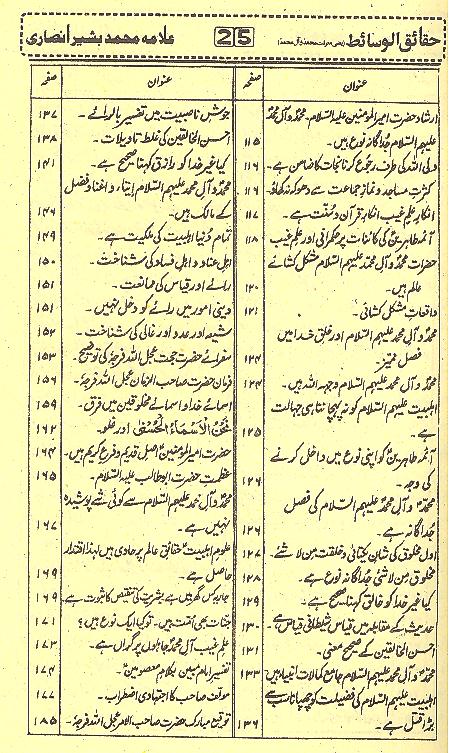 حقائق الوسائط 25 علامہ محمد بشیر انصاری
عنوان صفحہ
ارشاد حضرت امیرالمومنین علیہ السلام۔ محمدؐ و آلِ محمدؐ
علیہم السلام جداگانہ نوع ہیں۔ ۱۱۵
ولی اللہ کی طرف رجوع کرنا نجات کا ضامن ہے۔ ۱۱۶
کثرتِ مساجد و نمازِ جماعت سے دھوکہ نہ کھاؤ۔ ۱۱۶
انکارِ علمِ غیب انکارِ قرآن و سنّت ہے۔ ۱۱۷
آئمہ طاہرینؑ کی کائنات پر حکمرانی اور علمِ غیب ۱۱۸
حضرات محمدؐ و آلِ محمدؐ علیہم السلام مشکل کشائے
عالم ہیں۔ ۱۲۰
واقعاتِ مشکل کشائی۔ ۱۲۱
محمدؐ و آلِ محمد علیہم السلام اور خلقِ خدا میں
فصل ممیّز۔ ۱۲۴
محمدؐ و آلِ محمد علیہم السلام وجہہ اللہ ہیں۔ ۱۲۴
اہلبیت علیہم السلام کو نہ پہچاننا ہی جہالت
ہے۔ ۱۲۵
آئمہ طاہرینؑ کو اپنی نوع میں داخل کرنے
کی وجہ۔ ۱۲۶
محمدؐ و آلِ محمدؐ علیہم السلام کی فصل
جداگانہ ہے۔ ۱۲۶
اول مخلوق کی شانِ یکتائی و خلقت من لا شئے۔ ۱۲۷
مخلوق من لا شئی جداگانہ نوع ہے۔ ۱۲۸
کیا غیر خدا کو خالق کہنا صحیح ہے۔ ۱۲۹
حدیث کے مقابلہ میں قیاس شیطانی قیاس ہے۔ ۱۳۰
احسن الخالقین کے صحیح معنی۔ ۱۳۱
محمدؐ و آلِ محمدؐ علیہم السلام جامع کمالات انبیاء ہیں ۱۳۳
اہلبیت علیہم السلام کی فضیلت کو چھپانا سب سے
بڑا قتل ہے۔ ۱۳۶
عنوان صفحہ
جوشِ ناصبیت میں تفسیر بالرائے۔ ۱۳۷
احسن الخالقین کی غلط تاویلات۔ ۱۳۸
کیا غیر خدا کو رازق کہنا صحیح ہے۔ ۱۴۱
محمدؐ و آلِ محمد علیہم السلام ایتاء و اغناء فضل
کے مالک ہیں۔ ۱۴۶
تمام دنیا اہلبیت کی ملکیت ہے۔ ۱۴۹
اہلِ عناد و اہلِ فساد کی شناخت۔ ۱۵۰
رائے اور قیاس کی ممانعت ۱۵۱
دینی امور میں رائے کو دخل نہیں۔ ۱۵۱
شیعہ اور عدد اور غالی کی شناخت۔ ۱۵۲
سفرائے حضرت حجت عجل اللہ فرجہٗ کی توضیح۔ ۱۵۳
فرمان حضرت صاحب الزمان عجل اللہ فرجہٗ۔ ۱۵۶
اسمائے خدا و اسمائے مخلوقین میں فرق۔ ۱۵۹
نَحْنُ الْاَسْمَاءُ الْحُسْنٰی اور غلو۔ ۱۶۲
حضرت امیرالمومنینؑ اصل قدیم و فرع کریم ہیں۔ ۱۶۴
عظمتِ حضرت ابوطالب علیہ السلام۔ ۱۶۵
محمدؐ و آلِ محمد علیہم السلام سے کوئی شے پوشیدہ
نہیں ہے۔ ۱۶۷
علومِ اہلبیتؑ حقائقِ عالم پر حاوی ہیں لہٰذا اقتدار
حاصل ہے۔ ۱۶۹
بشریت کی تنقیص کا ثبوت ہے۔ ۱۶۹
جنات بھی اُمت ہیں۔ تو کیا ایک نوع ہیں؟ ۱۷۱
علمِ غیب آلِ محمدؐ جاہلوں پر گراں ہے۔ ۱۷۳
تفسیر امام مبین بکلامِ معصومینؑ۔ ۱۷۴
مولف صاحب کا اجتہادی اضطراب۔ ۱۷۷
توقیع مبارک حضرت صاحب الامر عجل اللہ فرجہٗ۔ ۱۸۵